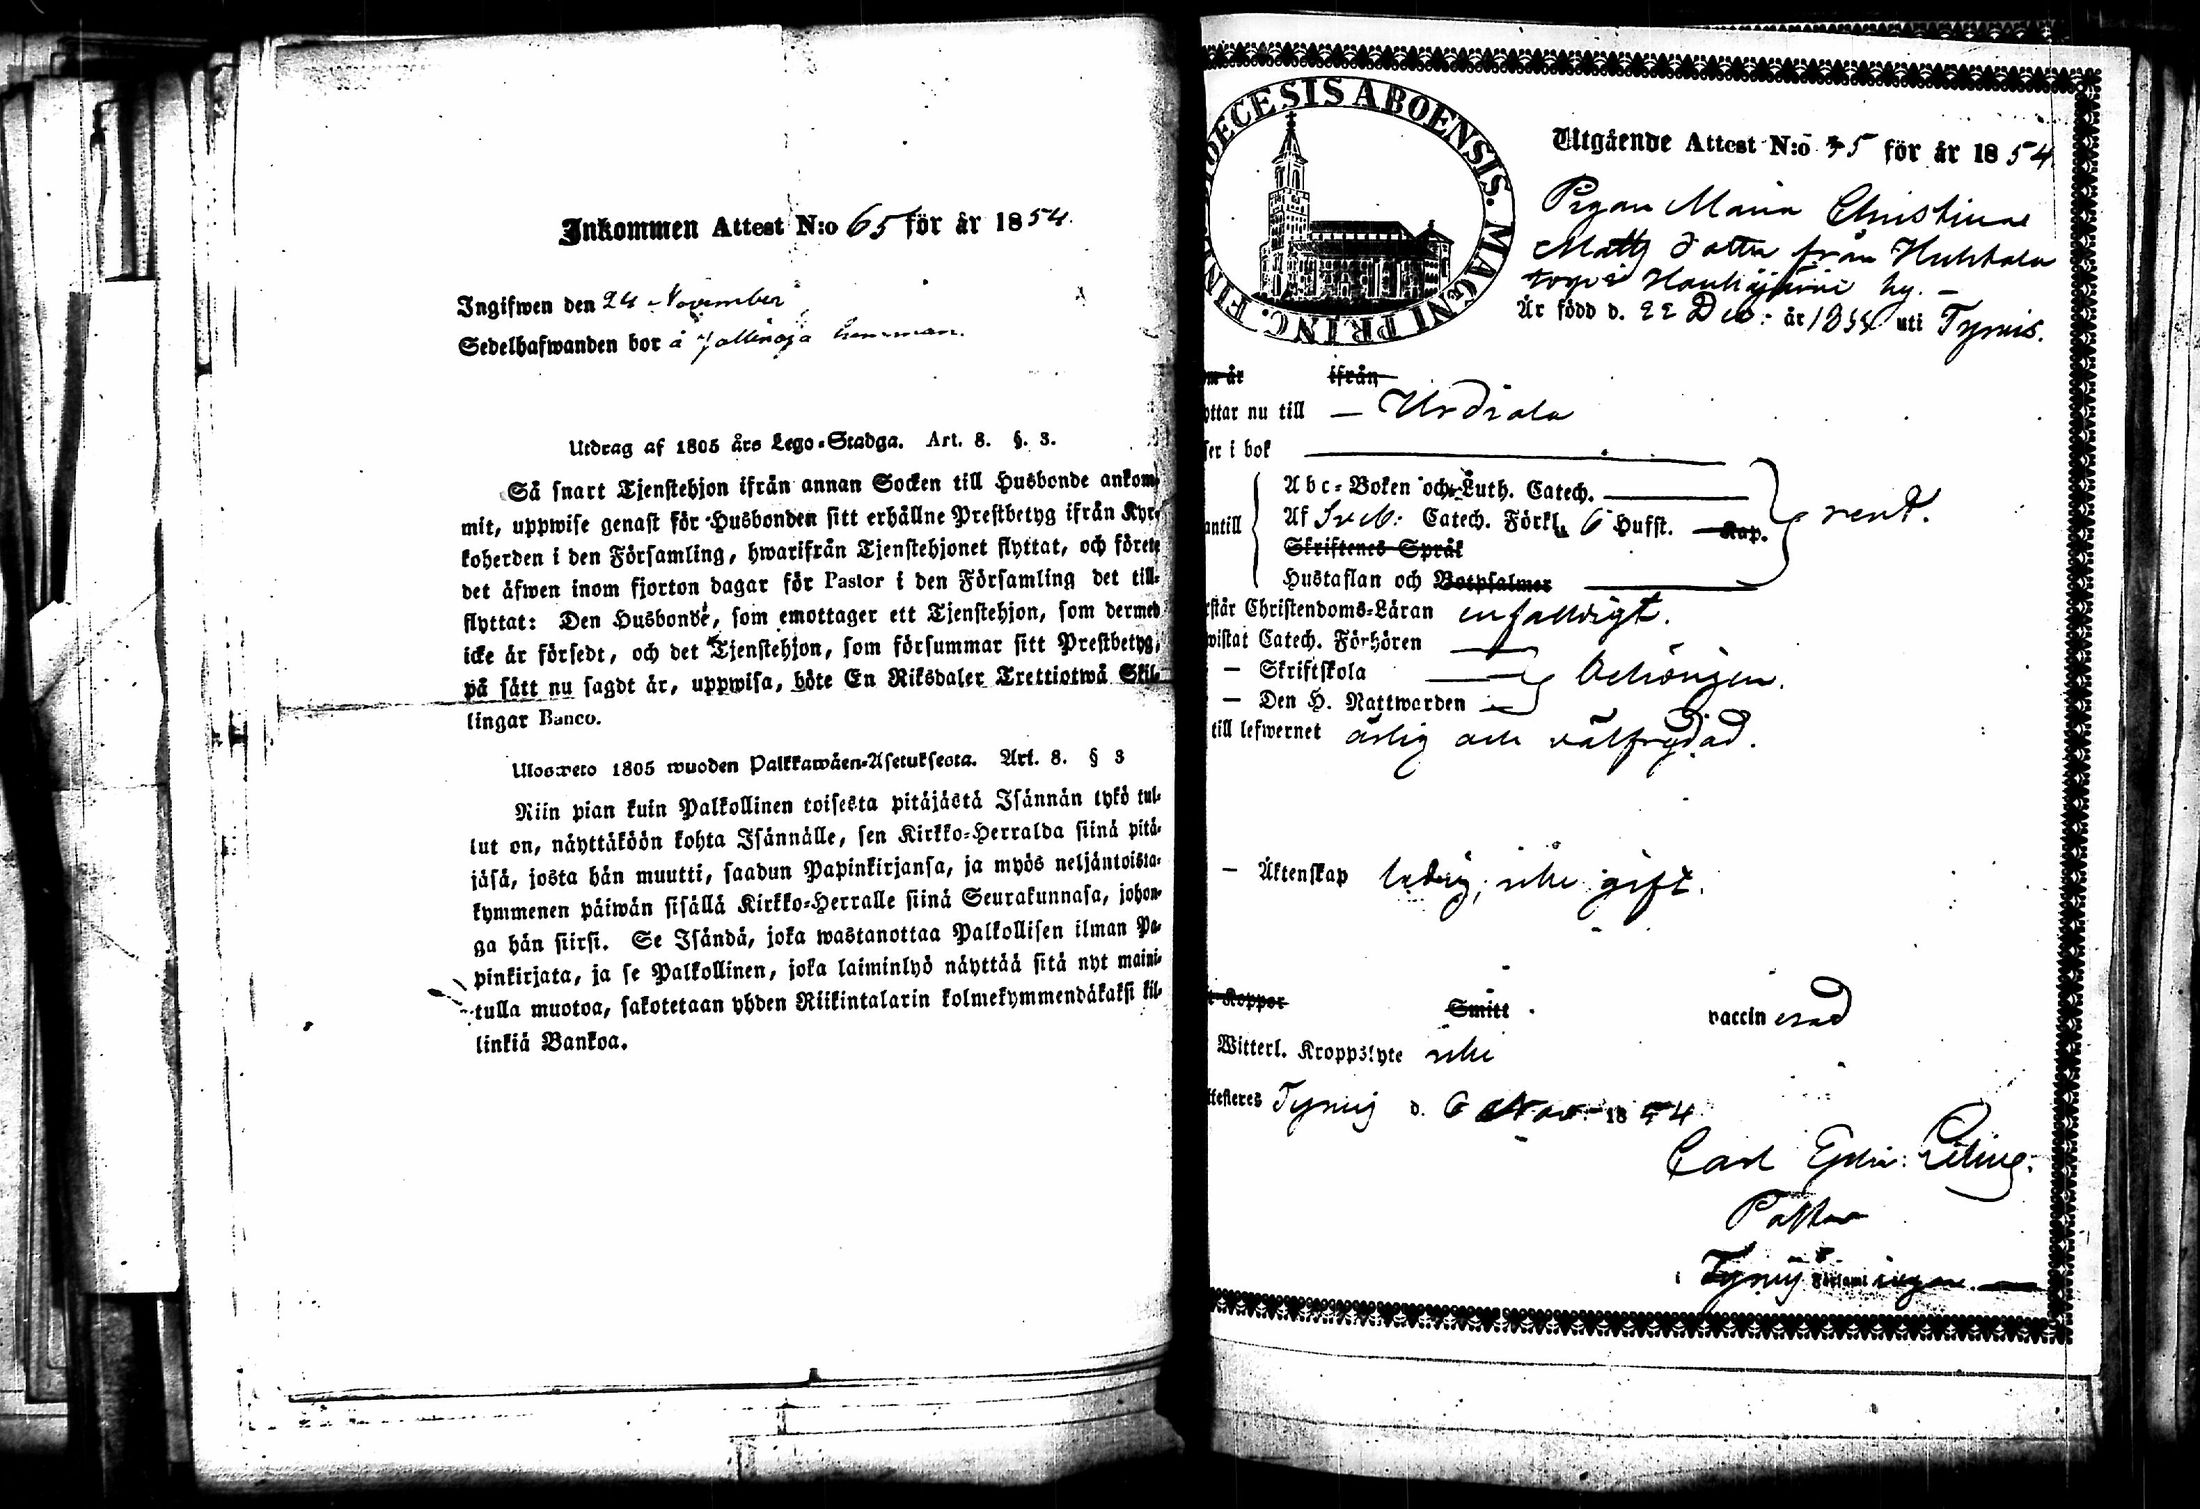 Inkommen Attest N:o 65 för år 1854.
Ingifwen den 24 November
Sedelhafwanden bor å hemman.
Utdrag af 1805 års Lego-Stadga. Art. 8. §. 3.
Så snart Tjenstehjon ifrån annan Socken till Husbonde ankom-
mit, uppwise genast för Husbonden sitt erhållne Prestbetyg ifrån Kyr-
koherden i den Församling, hwarifrån Tjenstehjonet flyttat, och förete
det äfwen inom fjorton dagar för Pastor i den Församling det till-
flyttat: Den Husbonde, som emottager ett Tjenstehjon, som dermed
icke är försedt, och det Tjenstehjon, som försummar sitt Prestbetyg,
på sätt nu sagdt är, uppwisa, böte En Riksdaler Trettiotwå Skil-
lingar Banco.
Ulosweto 1805 wuoden Palkkawäen-Asetuksesta. Art. 8. § 3
Niin pian kuin Palkollinen toisesta pitäjästä Isännän tykö tul-
lut on, näyttäköön kohta Isännälle, sen Kirkko-Herralda siinä pitä-
jäsä, josta hän muutti, saadun Papinkirjansa, ja myös neljäntoista-
kymmenen päiwän sisällä Kirkko-Herralle siinä Seurakunnasa, johon-
ga hän siirsi. Se Isändä, joka wastanottaa Palkollisen ilman Pa-
pinkirjata, ja se Palkollinen, joka laiminlyö näyttää sitä nyt maini-
tulla muotoa, sakotetaan yhden Riikintalarin kolmekymmendäkaksi kil-
linkiä Bankoa.
DIOECESIS ABOENSIS. MAGNI PRINC. FINL.
Utgående Attest N:o 35 för år 1854
Pigan Maria Christina
Matts dotter från Huhtala
torp i by.
Är född d. 22 Dec: år uti Tyrvis.
om år ifrån
yttar nu till — Urdiala
ser i bok
antill
Abc-Boken och Luth. Catech.
Af Sveb: Catech. Förkl. 6 Hufst. Kap.
Skriftenes Språk
Hustaflan och Botpsalmer
rent.
rstår Christendoms-Läran enfaldigt.
wistat Catech. Förhören
— Skriftskola
— Den H. Nattwarden
behörigen.
till lefwernet ärlig och välfrejdad.
— Äktenskap ledig, icke gift.
t Koppor Smitt vaccinerad
Witterl. Kroppslyte icke
ttesteres Tyrvis d. 6 Nov. 1854
Carl
Pastor
i Tyrvis Församlingar